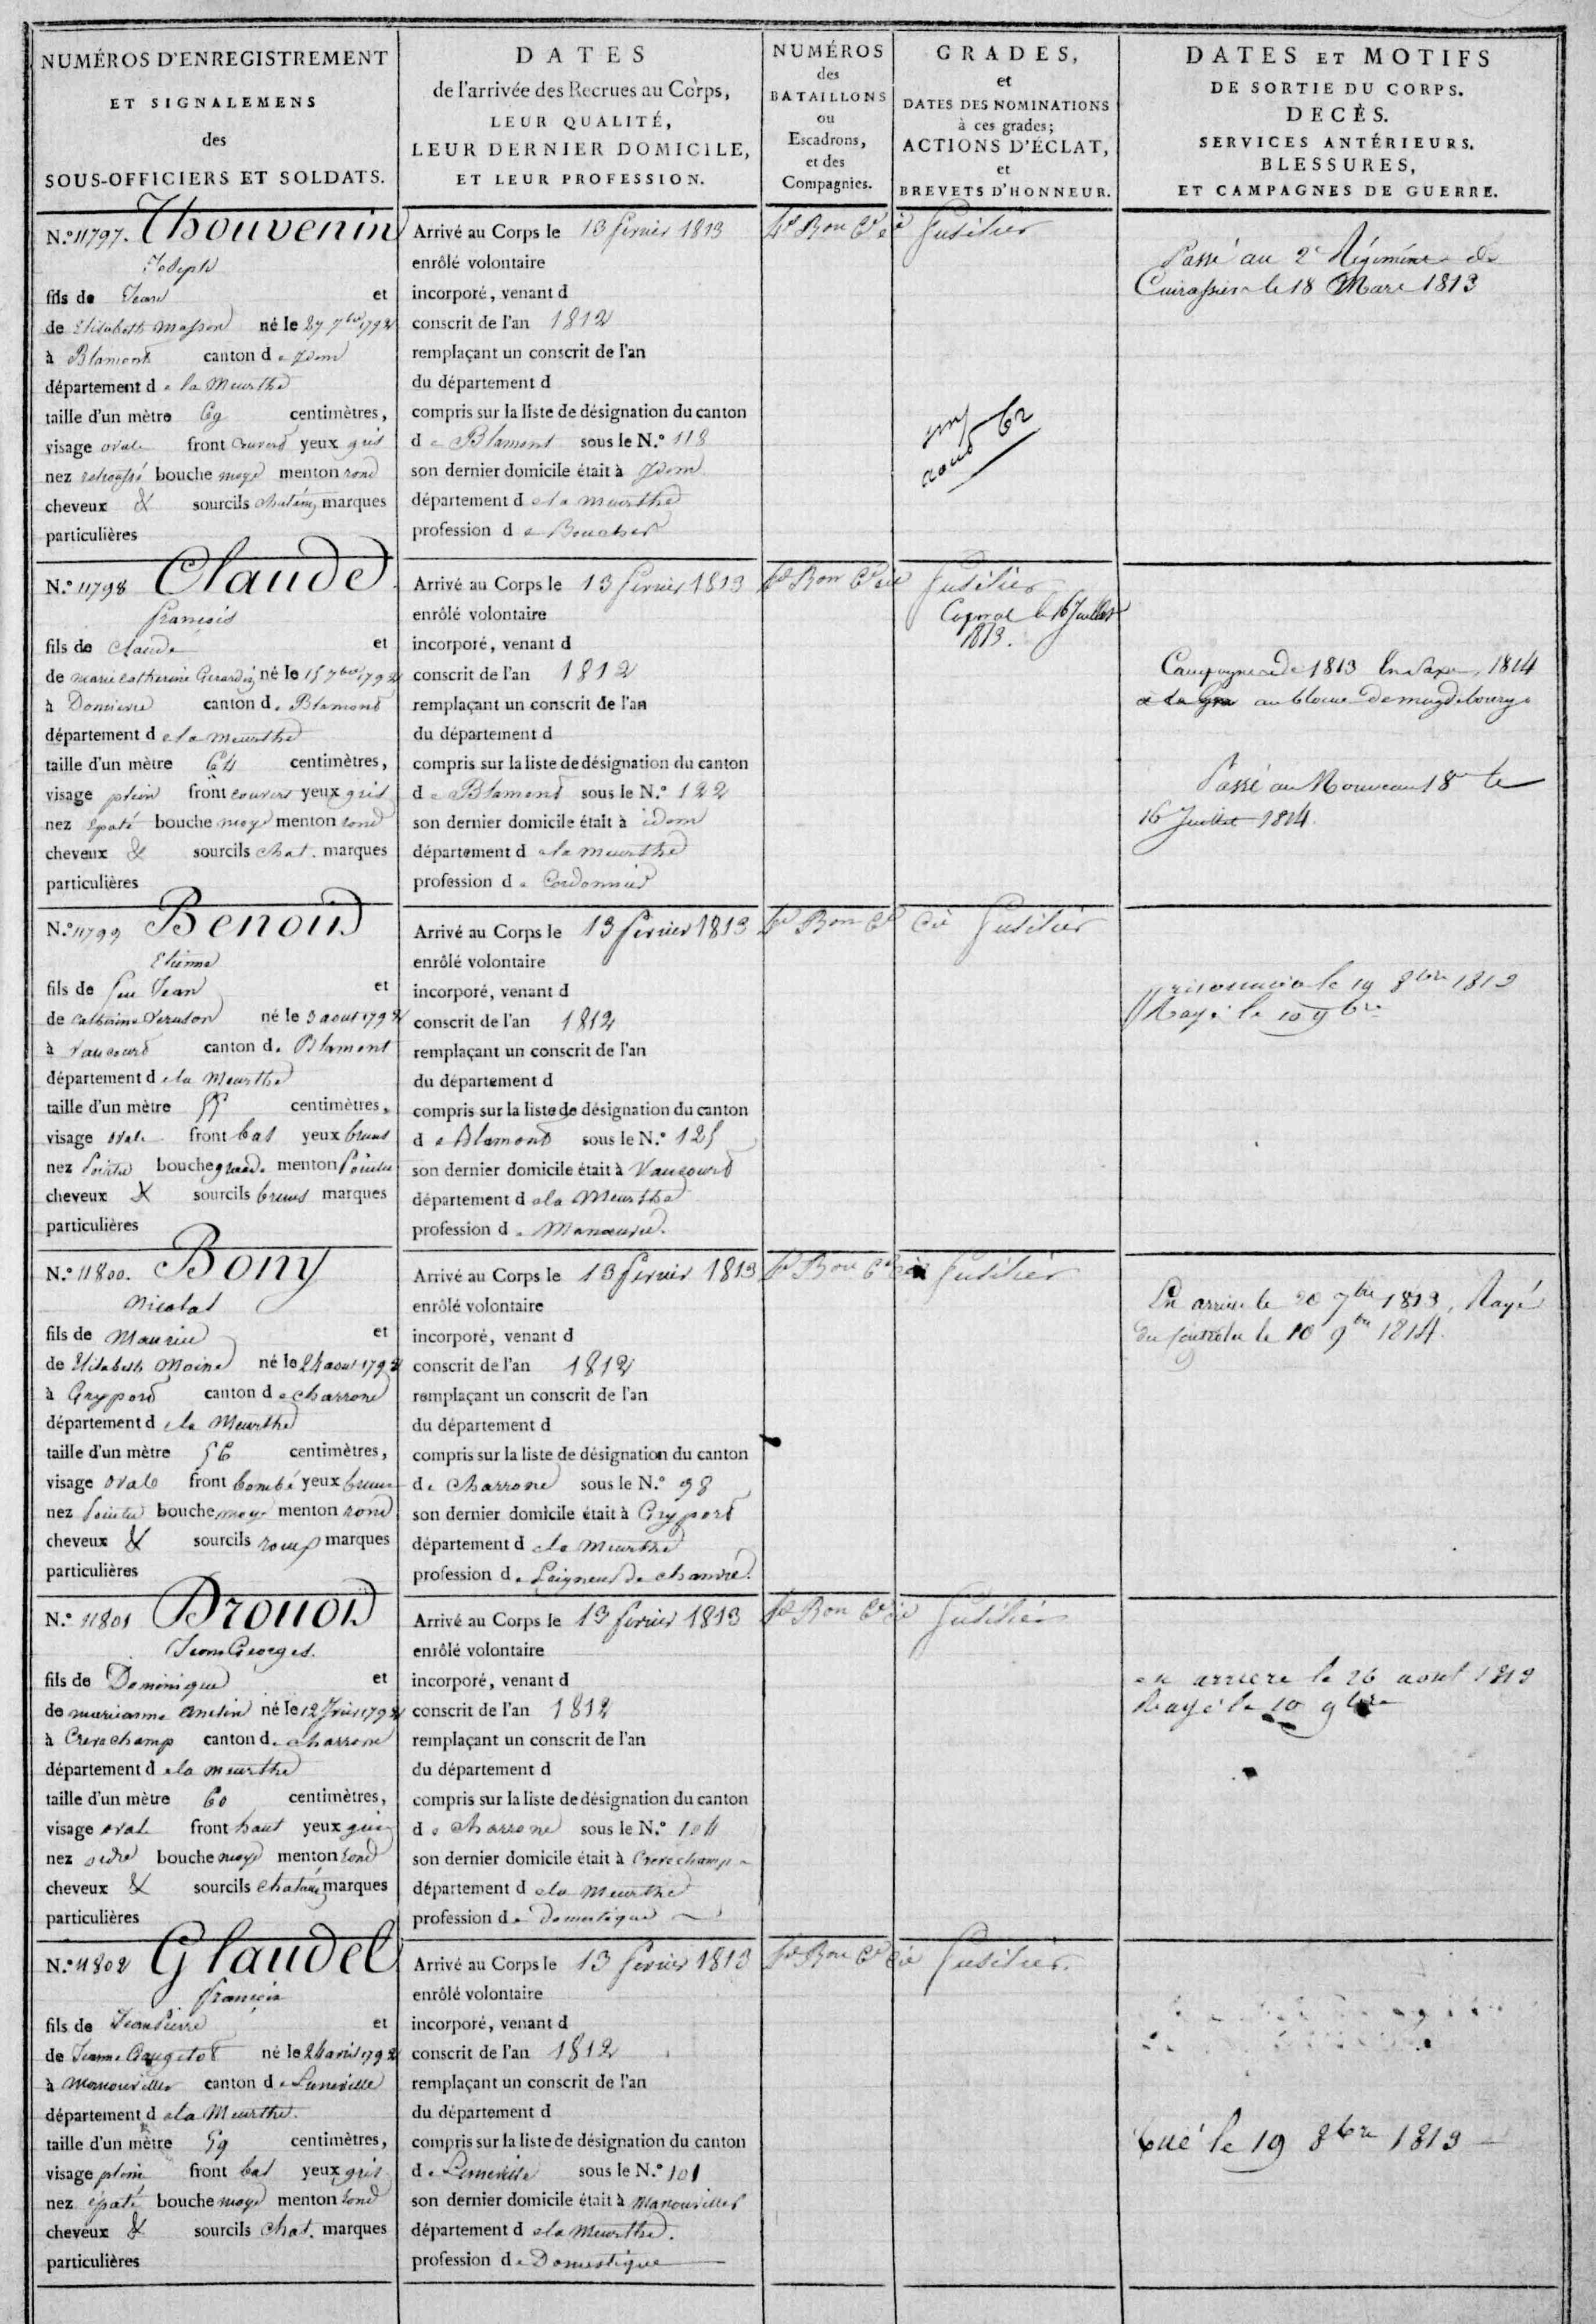 NUMÉROS D'ENREGISTREMENT
ET SIGNALEMENS
des
SOUS-OFFICIERS ET SOLDATS.
DATES
de l'arrivée des Recrues au Corps,
LEUR QUALITÉ,
LEUR DERNIER DOMICILE,
ET LEUR PROFESSION.
NUMÉROS
des
BATAILLONS
ou
Escadrons,
et des
Compagnies.
GRADES,
et
DATES DES NOMINATIONS
à ces grades;
ACTIONS D'ÉCLAT,
et
BREVETS D'HONNEUR.
DATES ET MOTIFS
DE SORTIE DU CORPS.
DECÈS.
SERVICES ANTÉRIEURS.
BLESSURES,
ET CAMPAGNES DE GUERRE.
N.º 11797. Thouvenin
Joseph
fils de Jean et
de Elisabeth Masson né le 27 7bre 1792
à Blamont canton de idem
département de la Meurthe
taille d'un mètre 69 centimètres,
visage ovale front couvert yeux gris
nez retroussé bouche moye menton rond
cheveux & sourcils chatains marques
particulières
Arrivé au Corps le 13 fevrier 1813
enrôlé volontaire
incorporé, venant d
conscrit de l'an 1812
remplaçant un conscrit de l'an
du département d
compris sur la liste de désignation du canton
de Blamont sous le N.º 118
son dernier domicile était à idem
département de la meurthe
profession de Boucher
4e Bon Cie
Fusilier
62
Passé au 2e Régiment de
Cuirassiers le 18 Mars 1813
N.º 11798 Claude
françois
fils de Claude et
de marie catherine Gerardin né le 15 7bre 1792
à Domievre canton de Blamont
département de la meurthe
taille d'un mètre 64 centimètres,
visage plein front couvert yeux gris
nez epaté bouche moye menton rond
cheveux & sourcils chat. marques
particulières
Arrivé au Corps le 13 fevrier 1813
enrôlé volontaire
incorporé, venant d
conscrit de l'an 1812
remplaçant un conscrit de l'an
du département d
compris sur la liste de désignation du canton
de Blamont sous le N.º 122
son dernier domicile était à idem
département de la meurthe
profession de Cordonnier
4e Bon Cie
Fusilier
Caporal le 16 Juillet
1813.
Campagnes de 1813 En Saxe, 1814
au blocus de magdebourg
Passé au Nouveau 18e le
16 Juillet 1814.
N.º 11799 Benoit
Etienne
fils de feu Jean et
de Catherine né le 3 aout 1792
à Vaucourt canton de Blamont
département de la Meurthe
taille d'un mètre 55 centimètres,
visage ovale front bas yeux bruns
nez Pointu bouche grande menton Pointu
cheveux & sourcils bruns marques
particulières
Arrivé au Corps le 13 fevrier 1813
enrôlé volontaire
incorporé, venant d
conscrit de l'an 1812
remplaçant un conscrit de l'an
du département d
compris sur la liste de désignation du canton
de Blamont sous le N.º 125
son dernier domicile était à Vaucourt
département de la Meurthe
profession de Manœuvre.
4e Bon Cie
Fusilier
prisonnier le 19 8bre 1813
Rayé le 10 9bre
N.º 11800. Bony
Nicolas
fils de Maurice et
de Elisabeth Moine né le 24 aout 1792
à Gryport canton de charrone
département de la Meurthe
taille d'un mètre 56 centimètres,
visage ovale front bombé yeux bruns
nez Pointu bouche moye menton rond
cheveux & sourcils roux marques
particulières
Arrivé au Corps le 13 fevrier 1813
enrôlé volontaire
incorporé, venant d
conscrit de l'an 1812
remplaçant un conscrit de l'an
du département d
compris sur la liste de désignation du canton
de charrone sous le N.º 98
son dernier domicile était à Gryport
département de la meurthe
profession de Peigneur de chanvre.
4e Bon Cie
Fusilier
En arriere le 20 7bre 1813, Rayé
du controle le 10 9bre 1814.
N.º 11801 Drouot
Jean Georges.
fils de Dominique et
de marieanne Antoine né le 12 1792
à Crevechamp canton de charrone
département de la meurthe
taille d'un mètre 60 centimètres,
visage ovale front haut yeux gris
nez bouche moye menton rond
cheveux & sourcils chatains marques
particulières
Arrivé au Corps le 13 fevrier 1813
enrôlé volontaire
incorporé, venant d
conscrit de l'an 1812
remplaçant un conscrit de l'an
du département d
compris sur la liste de désignation du canton
de charrone sous le N.º 104
son dernier domicile était à Crevechamp
département de la Meurthe
profession de Domestique
4e Bon Cie
Fusilier
en arriere le 26 aout 1813
Rayé le 10 9bre
N.º 11802 Glaudel
françois
fils de Jean Pierre et
de Jeanne né le 24 avril 1792
à Manonviller canton de Luneville
département de la Meurthe.
taille d'un mètre 59 centimètres,
visage plein front bas yeux gris
nez épaté bouche moye menton rond
cheveux & sourcils chat. marques
particulières
Arrivé au Corps le 13 fevrier 1813
enrôlé volontaire
incorporé, venant d
conscrit de l'an 1812
remplaçant un conscrit de l'an
du département d
compris sur la liste de désignation du canton
de Luneville sous le N.º 101
son dernier domicile était à Manonviller
département de la Meurthe.
profession de Domestique
4e Bon Cie
Fusilier.
tué le 19 8bre 1813